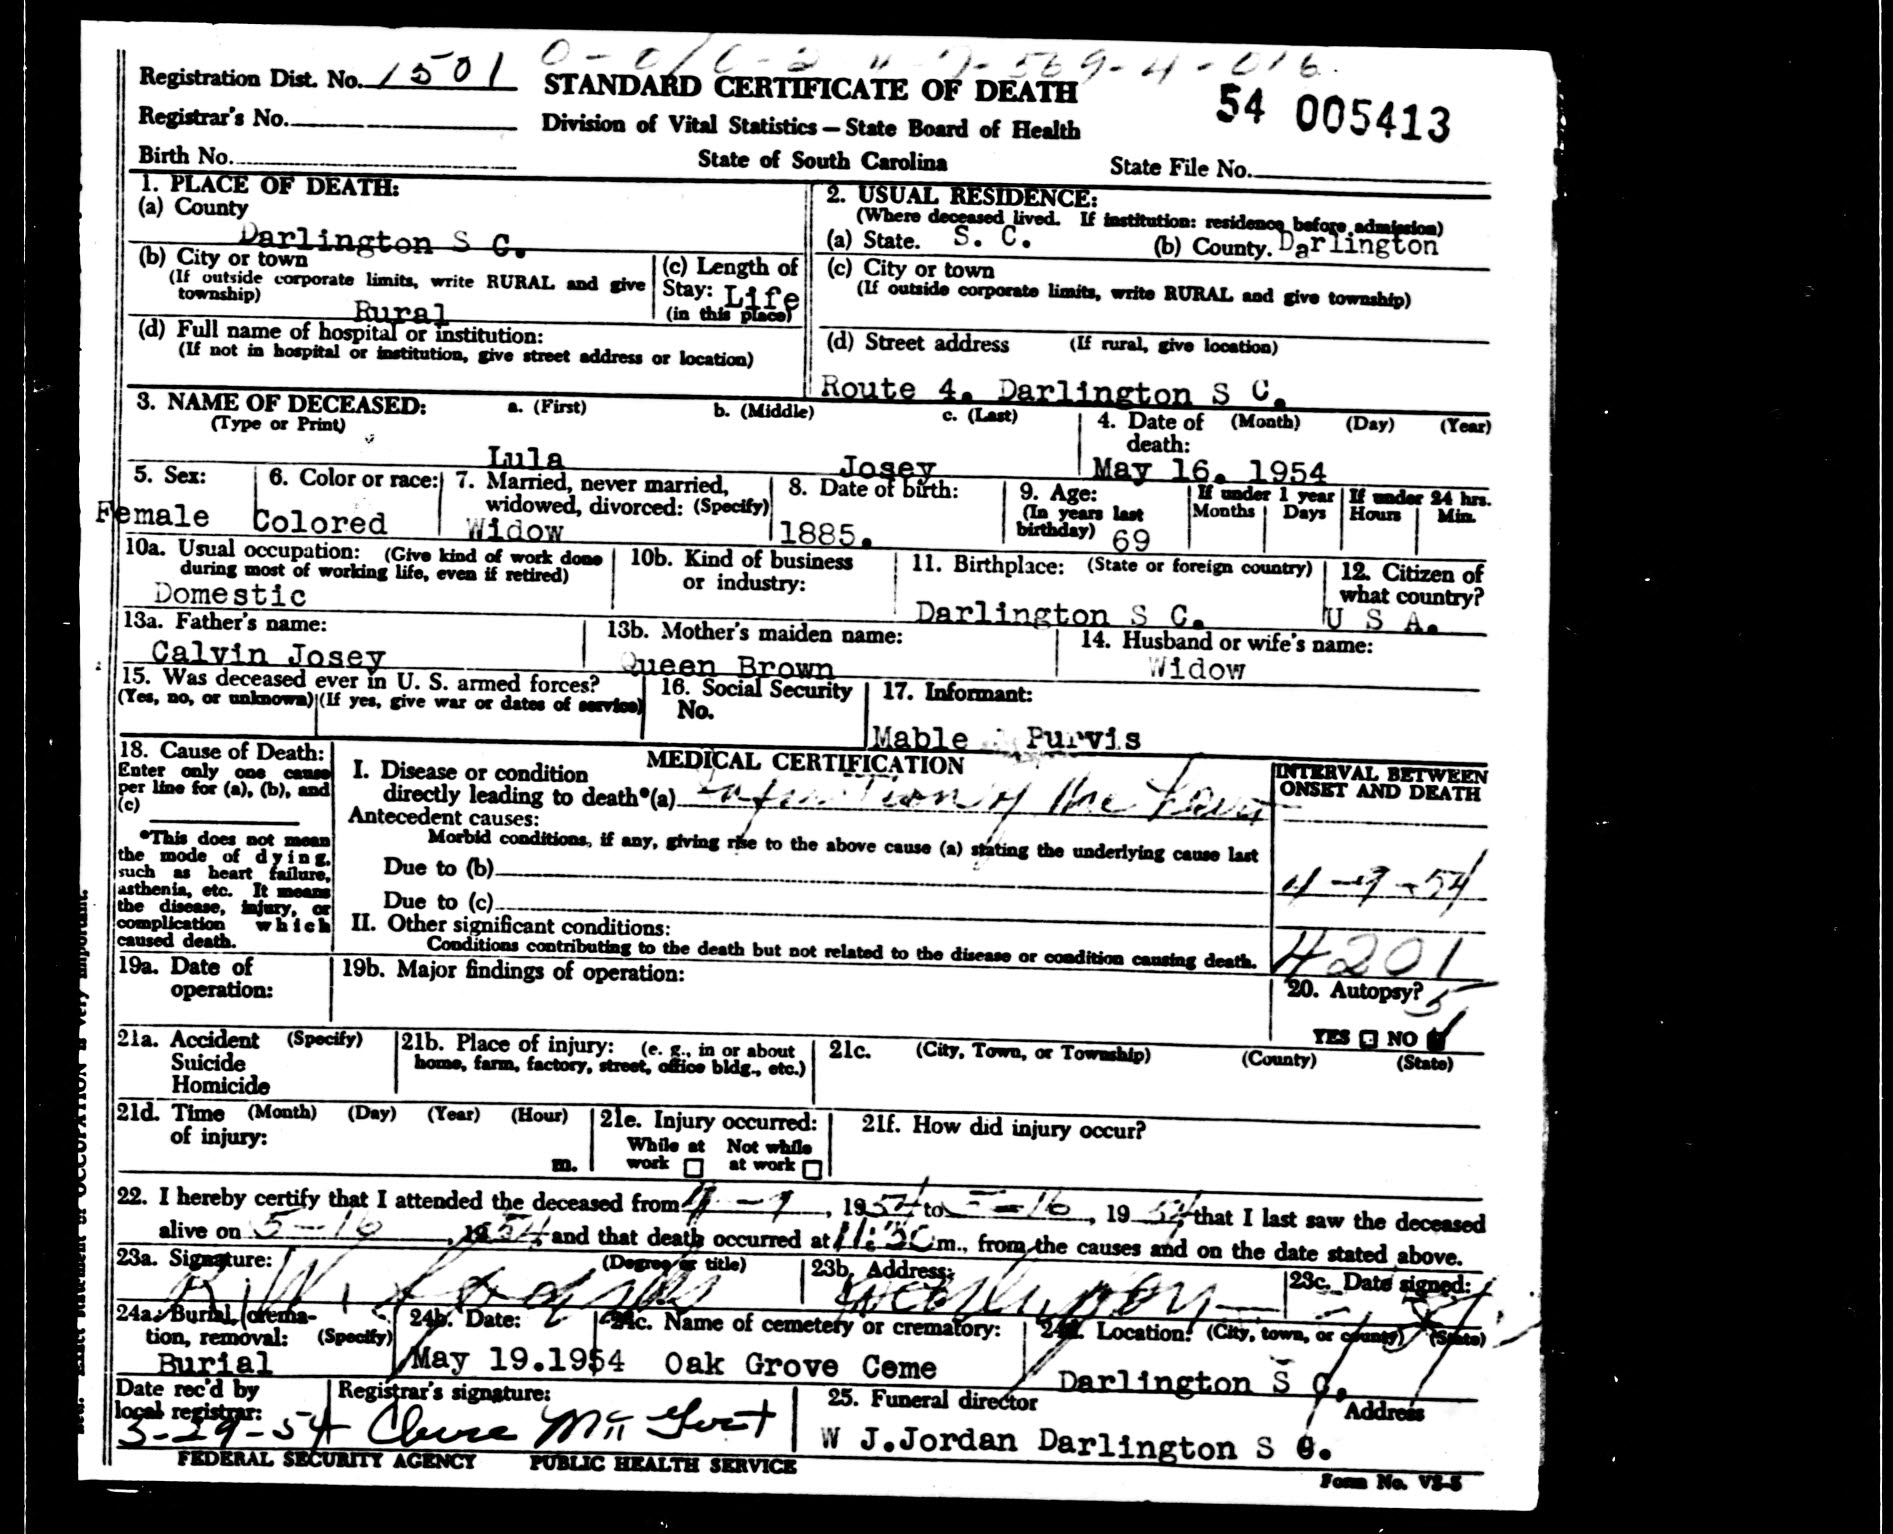 Registration Dist. No. 1501
STANDARD CERTIFICATE OF DEATH
54 005413
Registrar's No.
Division of Vital Statistics — State Board of Health
Birth No.
State of South Carolina
State File No.
1. PLACE OF DEATH:
(a) County
Darlington S C.
(b) City or town
(If outside corporate limits, write RURAL and give township)
Rural
(c) Length of Stay: Life
(in this place)
(d) Full name of hospital or institution:
(If not in hospital or institution, give street address or location)
2. USUAL RESIDENCE:
(Where deceased lived. If institution: residence before admission)
(a) State. S. C. (b) County. Darlington
(c) City or town
(If outside corporate limits, write RURAL and give township)
(d) Street address (If rural, give location)
Route 4. Darlington S C.
3. NAME OF DECEASED: a. (First) b. (Middle) c. (Last)
(Type or Print)
Lula Josey
4. Date of death: (Month) (Day) (Year)
May 16. 1954
5. Sex:
Female
6. Color or race:
Colored
7. Married, never married, widowed, divorced: (Specify)
Widow
8. Date of birth:
1885.
9. Age:
(In years last birthday) 69
If under 1 year
Months Days
If under 24 hrs.
Hours Min.
10a. Usual occupation: (Give kind of work done during most of working life, even if retired)
Domestic
10b. Kind of business or industry:
11. Birthplace: (State or foreign country)
Darlington S C.
12. Citizen of what country?
U S A.
13a. Father's name:
Calvin Josey
13b. Mother's maiden name:
Queen Brown
14. Husband or wife's name:
Widow
15. Was deceased ever in U. S. armed forces?
(Yes, no, or unknown) (If yes, give war or dates of service)
16. Social Security No.
17. Informant:
Mable Purvis
18. Cause of Death:
Enter only one cause per line for (a), (b), and (c)
*This does not mean the mode of dying, such as heart failure, asthenia, etc. It means the disease, injury, or complication which caused death.
MEDICAL CERTIFICATION
I. Disease or condition
directly leading to death*(a) of the
Antecedent causes:
Morbid conditions, if any, giving rise to the above cause (a) stating the underlying cause last
Due to (b)
Due to (c)
II. Other significant conditions:
Conditions contributing to the death but not related to the disease or condition causing death.
INTERVAL BETWEEN
ONSET AND DEATH
4-9-54
4201
19a. Date of operation:
19b. Major findings of operation:
20. Autopsy? 5
YES NO
21a. Accident (Specify)
Suicide
Homicide
21b. Place of injury: (e. g., in or about home, farm, factory, street, office bldg., etc.)
21c. (City, Town, or Township) (County) (State)
21d. Time (Month) (Day) (Year) (Hour)
of injury:
m.
21e. Injury occurred:
While at work Not while at work
21f. How did injury occur?
22. I hereby certify that I attended the deceased from 4-9, 1954 to 5-16, 1954 that I last saw the deceased
alive on 5-16, 1954, and that death occurred at 11:30 m., from the causes and on the date stated above.
23a. Signature: (Degree or title)
23b. Address:
Darlington
23c. Date signed:
24a. Burial, cremation, removal: (Specify)
Burial
24b. Date:
May 19.1954
24c. Name of cemetery or crematory:
Oak Grove Ceme
24d. Location: (City, town, or county) (State)
Darlington S C.
Date rec'd by local registrar:
5-29-54
Registrar's signature:
25. Funeral director Address
W J.Jordan Darlington S C.
FEDERAL SECURITY AGENCY PUBLIC HEALTH SERVICE
Form No. VS-5